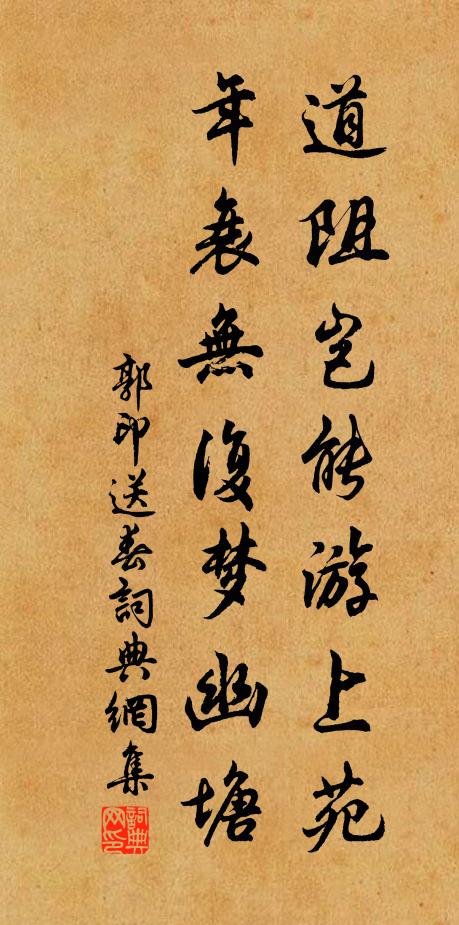 道阻岂能游上苑
年衰無復梦幽塘
郭印送春詞典網集
詞典网印